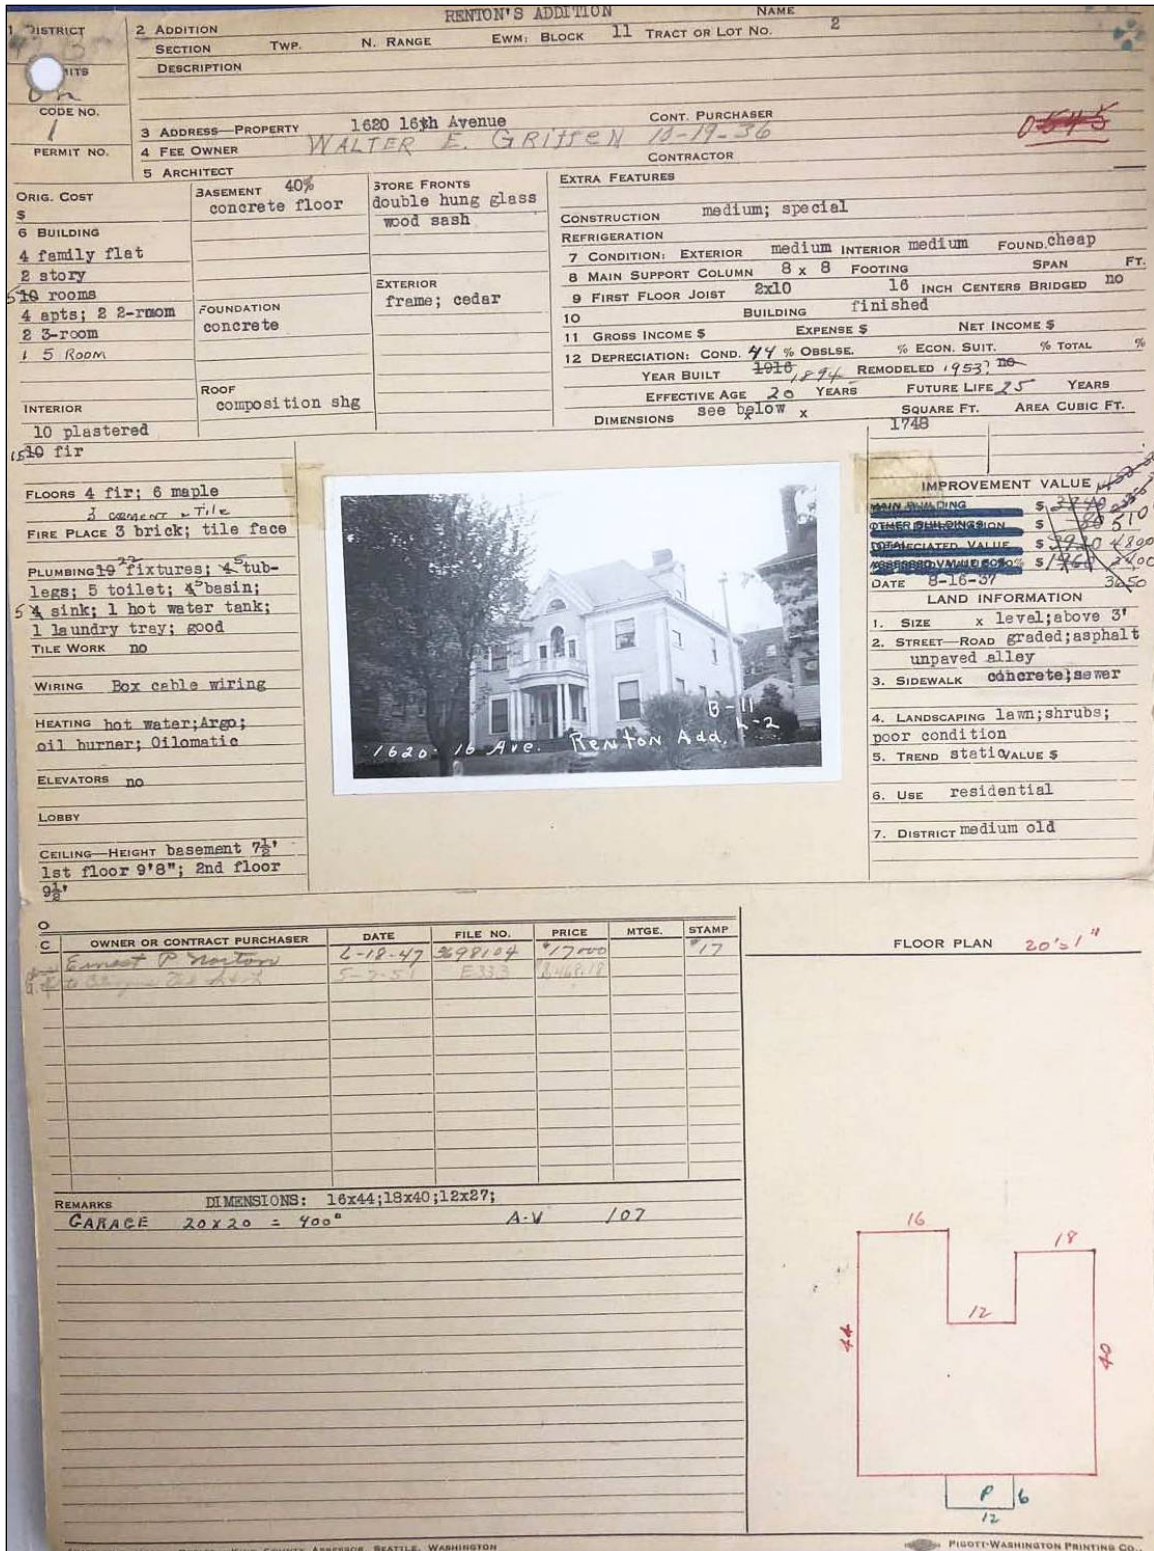 RENTON'S ADDITION NAME
1 DISTRICT 2 ADDITION
SECTION TWP. N. RANGE EWM: BLOCK 11 TRACT OR LOT NO. 2
DESCRIPTION
CODE NO.
1
PERMIT NO.
3 ADDRESS—PROPERTY 1620 16th Avenue CONT. PURCHASER
4 FEE OWNER WALTER E. GRIffEN 10-19-36
CONTRACTOR
0545
5 ARCHITECT
ORIG. COST
$
6 BUILDING
4 family flat
2 story
10 rooms
4 apts; 2 2-room
2 3-room
1 5 ROOM
INTERIOR
10 plastered
15 10 fir
BASEMENT 40%
concrete floor
FOUNDATION
concrete
ROOF
composition shg
STORE FRONTS
double hung glass
wood sash
EXTERIOR
frame; cedar
EXTRA FEATURES
CONSTRUCTION medium; special
REFRIGERATION
7 CONDITION: EXTERIOR medium INTERIOR medium FOUND. cheap
8 MAIN SUPPORT COLUMN 8 x 8 FOOTING SPAN FT.
9 FIRST FLOOR JOIST 2x10 16 INCH CENTERS BRIDGED no
10 BUILDING finished
11 GROSS INCOME $ EXPENSE $ NET INCOME $
12 DEPRECIATION: COND. 44 % OBSLSE. % ECON. SUIT. % TOTAL %
YEAR BUILT 1916 1894 REMODELED 1953? no
EFFECTIVE AGE 20 YEARS FUTURE LIFE 25 YEARS
DIMENSIONS see below x x SQUARE FT. AREA CUBIC FT.
1748
FLOORS 4 fir; 6 maple
3 cement & Tile
FIRE PLACE 3 brick; tile face
PLUMBING 19 22 fixtures; 4 5 tub-
legs; 5 toilet; 4 5 basin;
5 4 sink; 1 hot water tank;
1 laundry tray; good
TILE WORK no
WIRING Box cable wiring
HEATING hot water;Argo;
oil burner; Oilomatic
ELEVATORS no
LOBBY
CEILING—HEIGHT basement 7½'
1st floor 9'8"; 2nd floor
9½'
B-11
1620-16 Ave. Renton Add. L-2
IMPROVEMENT VALUE
MAIN BUILDING $
OTHER BUILDINGS $ 510
$ 3920 4800
$ 1960 2400
DATE 8-16-37 3650
LAND INFORMATION
1. SIZE x level;above 3'
2. STREET—ROAD graded;asphalt
unpaved alley
3. SIDEWALK concrete;sewer
4. LANDSCAPING lawn;shrubs;
poor condition
5. TREND static VALUE $
6. USE residential
7. DISTRICT medium old
O
C OWNER OR CONTRACT PURCHASER DATE FILE NO. PRICE MTGE. STAMP
Ernest P Norton 6-18-47 3698104 $17000 $17
5-2-51 E333
REMARKS DIMENSIONS: 16x44;18x40;12x27;
GARAGE 20x20 = 400 A-V 107
FLOOR PLAN 20'=1"
16
18
12
44
40
P 6
12
KING COUNTY ASSESSOR, SEATTLE, WASHINGTON
PIGOTT-WASHINGTON PRINTING CO.